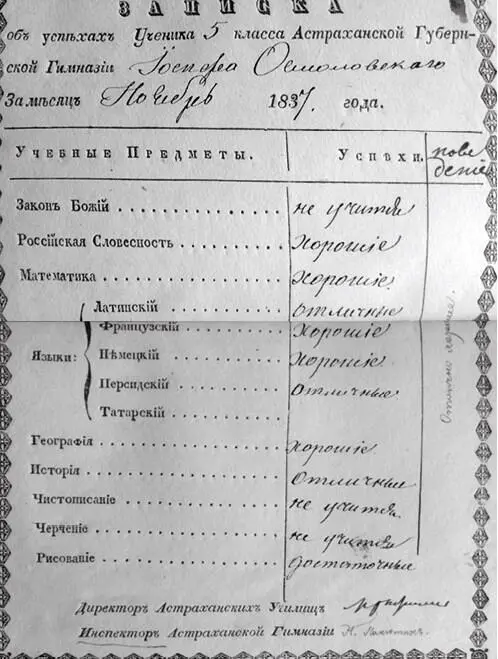 ЗАПИСКА
объ успѣхахъ Ученика 5 класса Астраханской Губерн-
ской Гимназіи Іосифа Осмоловскаго
За мѣсяцъ Ноябрь 1837. года.
Учебные Предметы. Успѣхи. пове
дение
Законъ Божій не учится
Россійская Словесность хорошіе
Математика хорошіе
Языки:
Латинскій отличные
Французскій хорошіе
Нѣмецкій хорошіе
Персидскій отличные
Татарскій
Географія хорошіе
Исторія отличные
Чистописаніе не учится
Черченіе не учится
Рисованіе достаточные
Отлично хорошее.
Директоръ Астраханскихъ Училищъ
Инспекторъ Астраханской Гимназіи